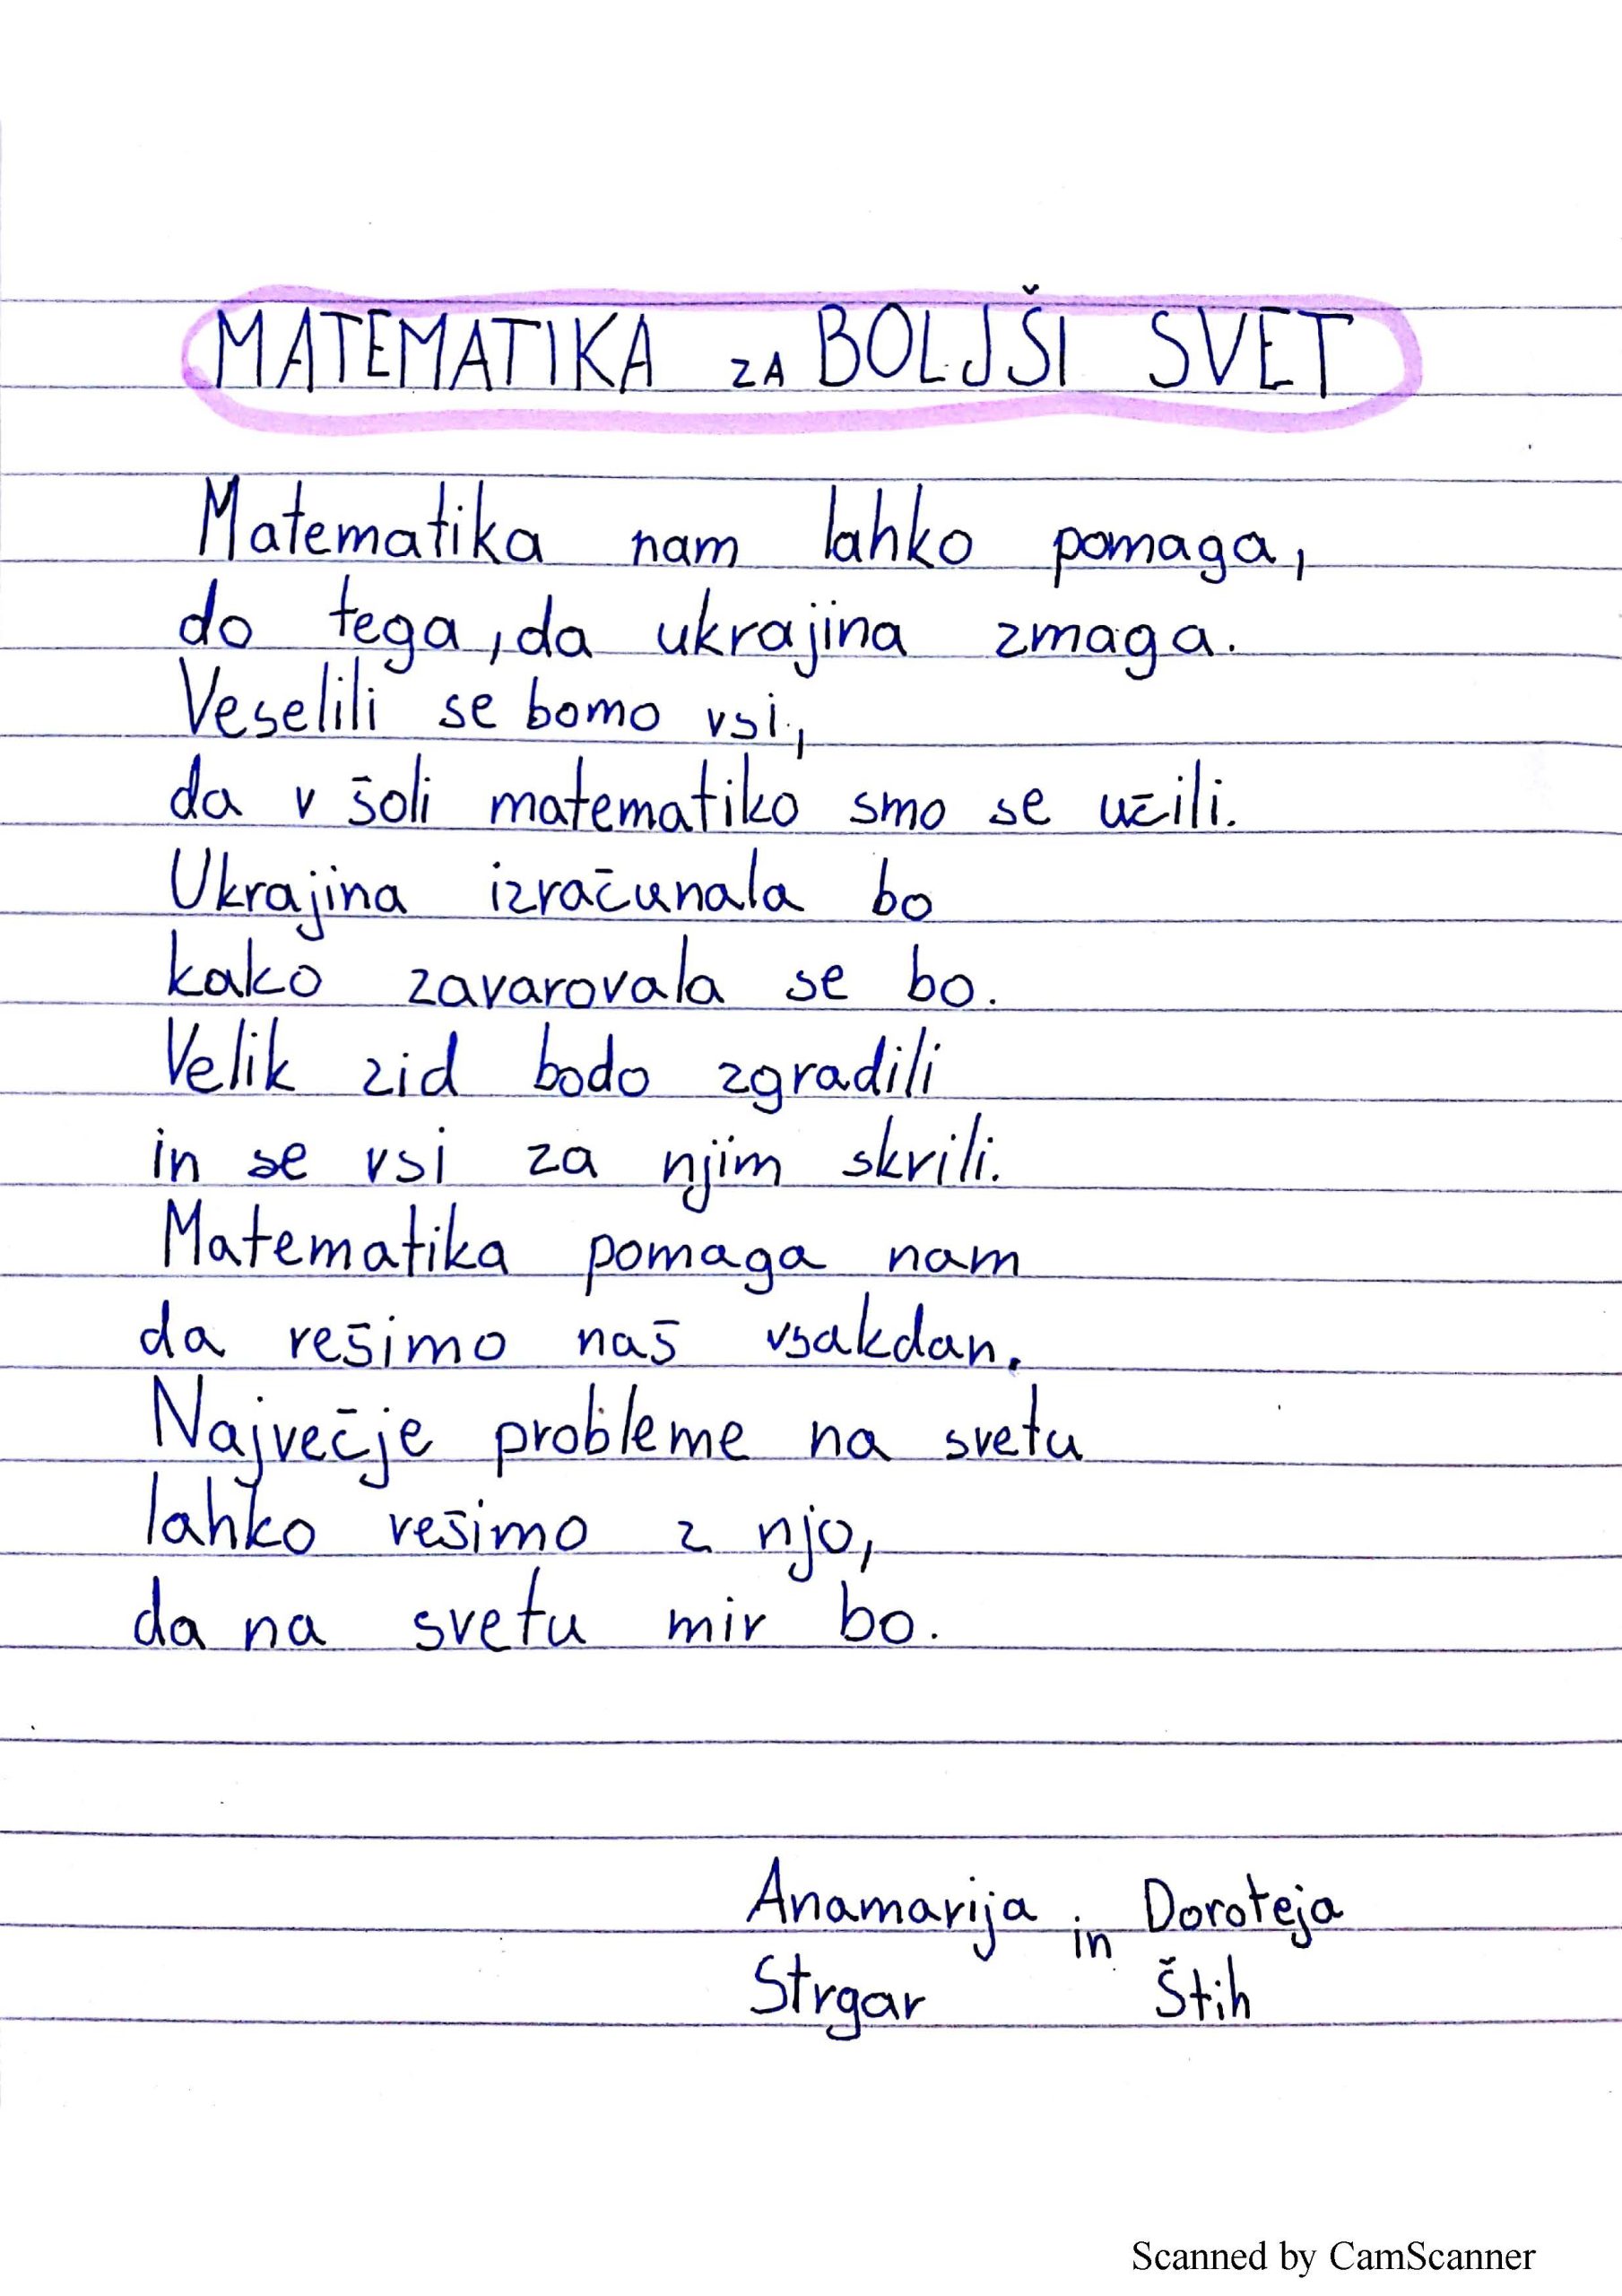 MATEMATIKA ZA BOLJŠI SVET
Matematika nam lahko pomaga,
do tega, da ukrajina zmaga.
Veselili se bomo vsi,
da v šoli matematiko smo se učili.
Ukrajina izračunala bo
kako zavarovala se bo.
Velik zid bodo zgradili
in se vsi za njim skrili.
Matematika pomaga nam
da rešimo naš vsakdan.
Največje probleme na svetu
lahko rešimo z njo,
da na svetu mir bo.
Anamarija in Doroteja
Strgar Štih
Scanned by CamScanner